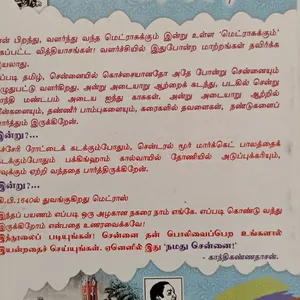 ன் பிறந்து, வளர்ந்து வந்த மெட்ராசுக்கும் இன்று உள்ள 'மெட்ராசுக்கும்'
கப்பட்ட வித்தியாசங்கள்! வளர்ச்சியில் இதுபோன்ற மாற்றங்கள் தவிர்க்க
இயலாது.
ப்படி தமிழ், சென்னையில் கொச்சையானதோ அதே போன்று சென்னையும்
ழுதுபட்டு வளர்கிறது. அன்று அடையாறு ஆற்றைக் கடந்து, படகில் சென்று
ாந்தி மண்டபம் அடைய ஐந்து காசுகள், அன்று அடையாறு ஆற்றில்
ீன்களையும், தண்ணீர் பாம்புகளையும், கரைகளில் தவளைகள், நண்டுகளைப்
ார்த்தும் இருக்கிறேன்.
இன்று?...
ச்சேரி ரோட்டைக் கடக்கும்போதும், சென்டரல் மூர் மார்க்கெட் பாலத்தைக்
டைக்கும்போதும் பக்கிங்ஹாம் கால்வாயில் தோணியில் அடுப்புக்கரியும்,
வுக்கும் ஏற்றி வந்ததை பார்த்திருக்கிறேன்.
இன்று?...
கி.பி.1640ல் துவங்குகிறது மெட்ராஸ்
இந்தப் பயணம் எப்படி ஒரு அழகான நகரை நாம் எங்கே. எப்படி கொண்டு வந்து
இருக்கிறோம் என்பதை உணரவைக்கவே!
இந்நூலைப் படியுங்கள்! சென்னை தன் பொலிவைப்பெற உங்களால்
இயன்றதைச் செய்யுங்கள். ஏனெனில் இது 'நமது சென்னை!'
- காந்திகண்ணதாசன்.